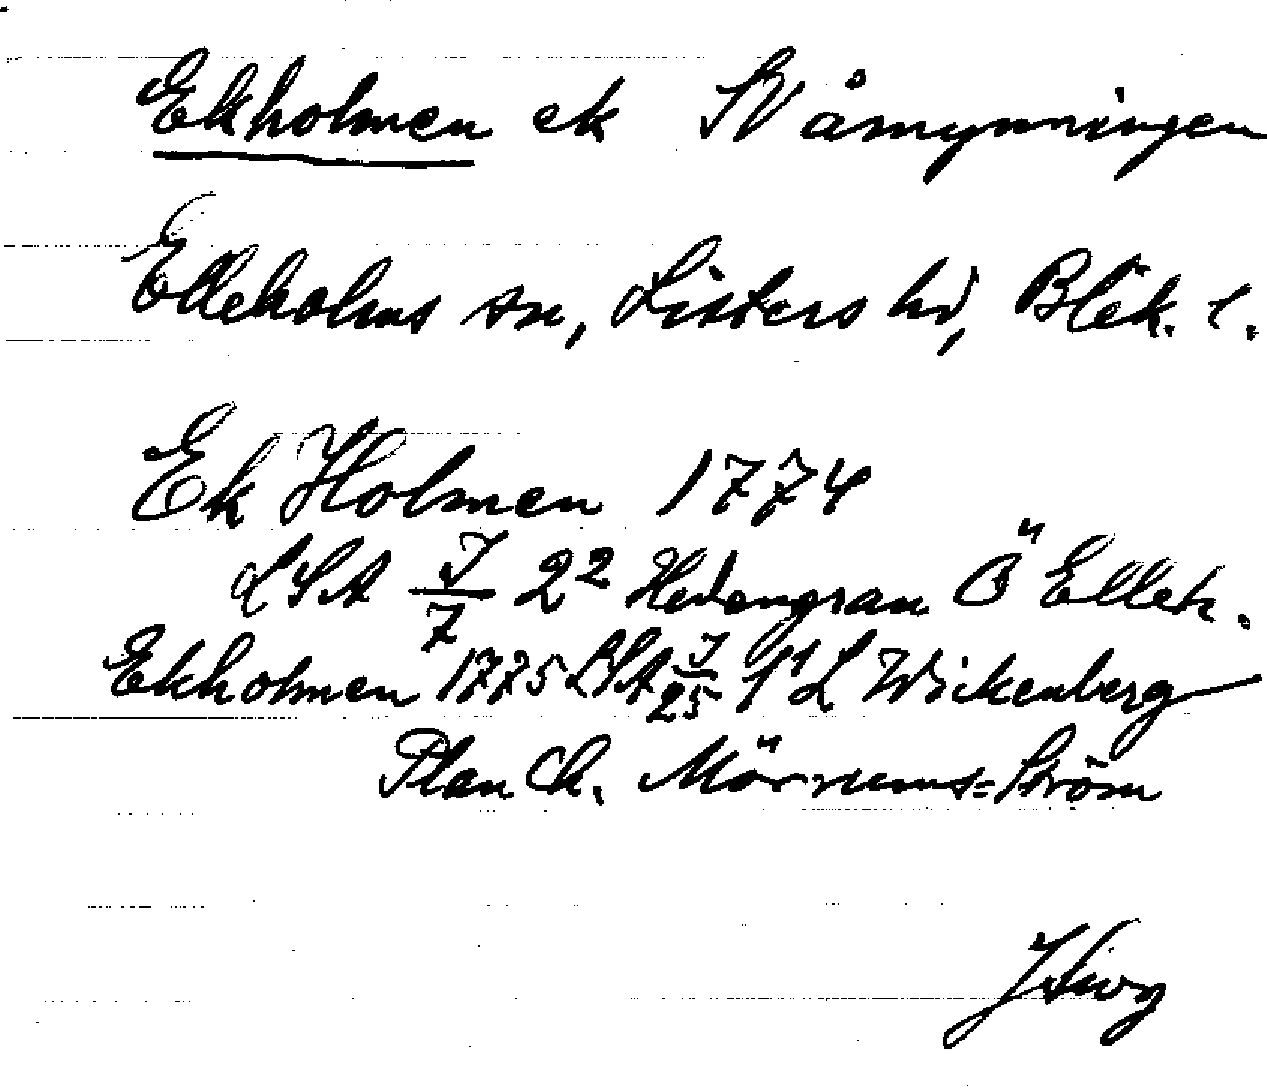 Ekholmen ek SV åmynningen
Elleholms sn, Listers hd, Blek. l.
Ek Holmen 1774
LSA J/7 2² Hedengran Ö Elleh.
Ekholmen 1775 LSA J/25 1¹ L Wickenberg
Plan Ch. Mörrums=Ström